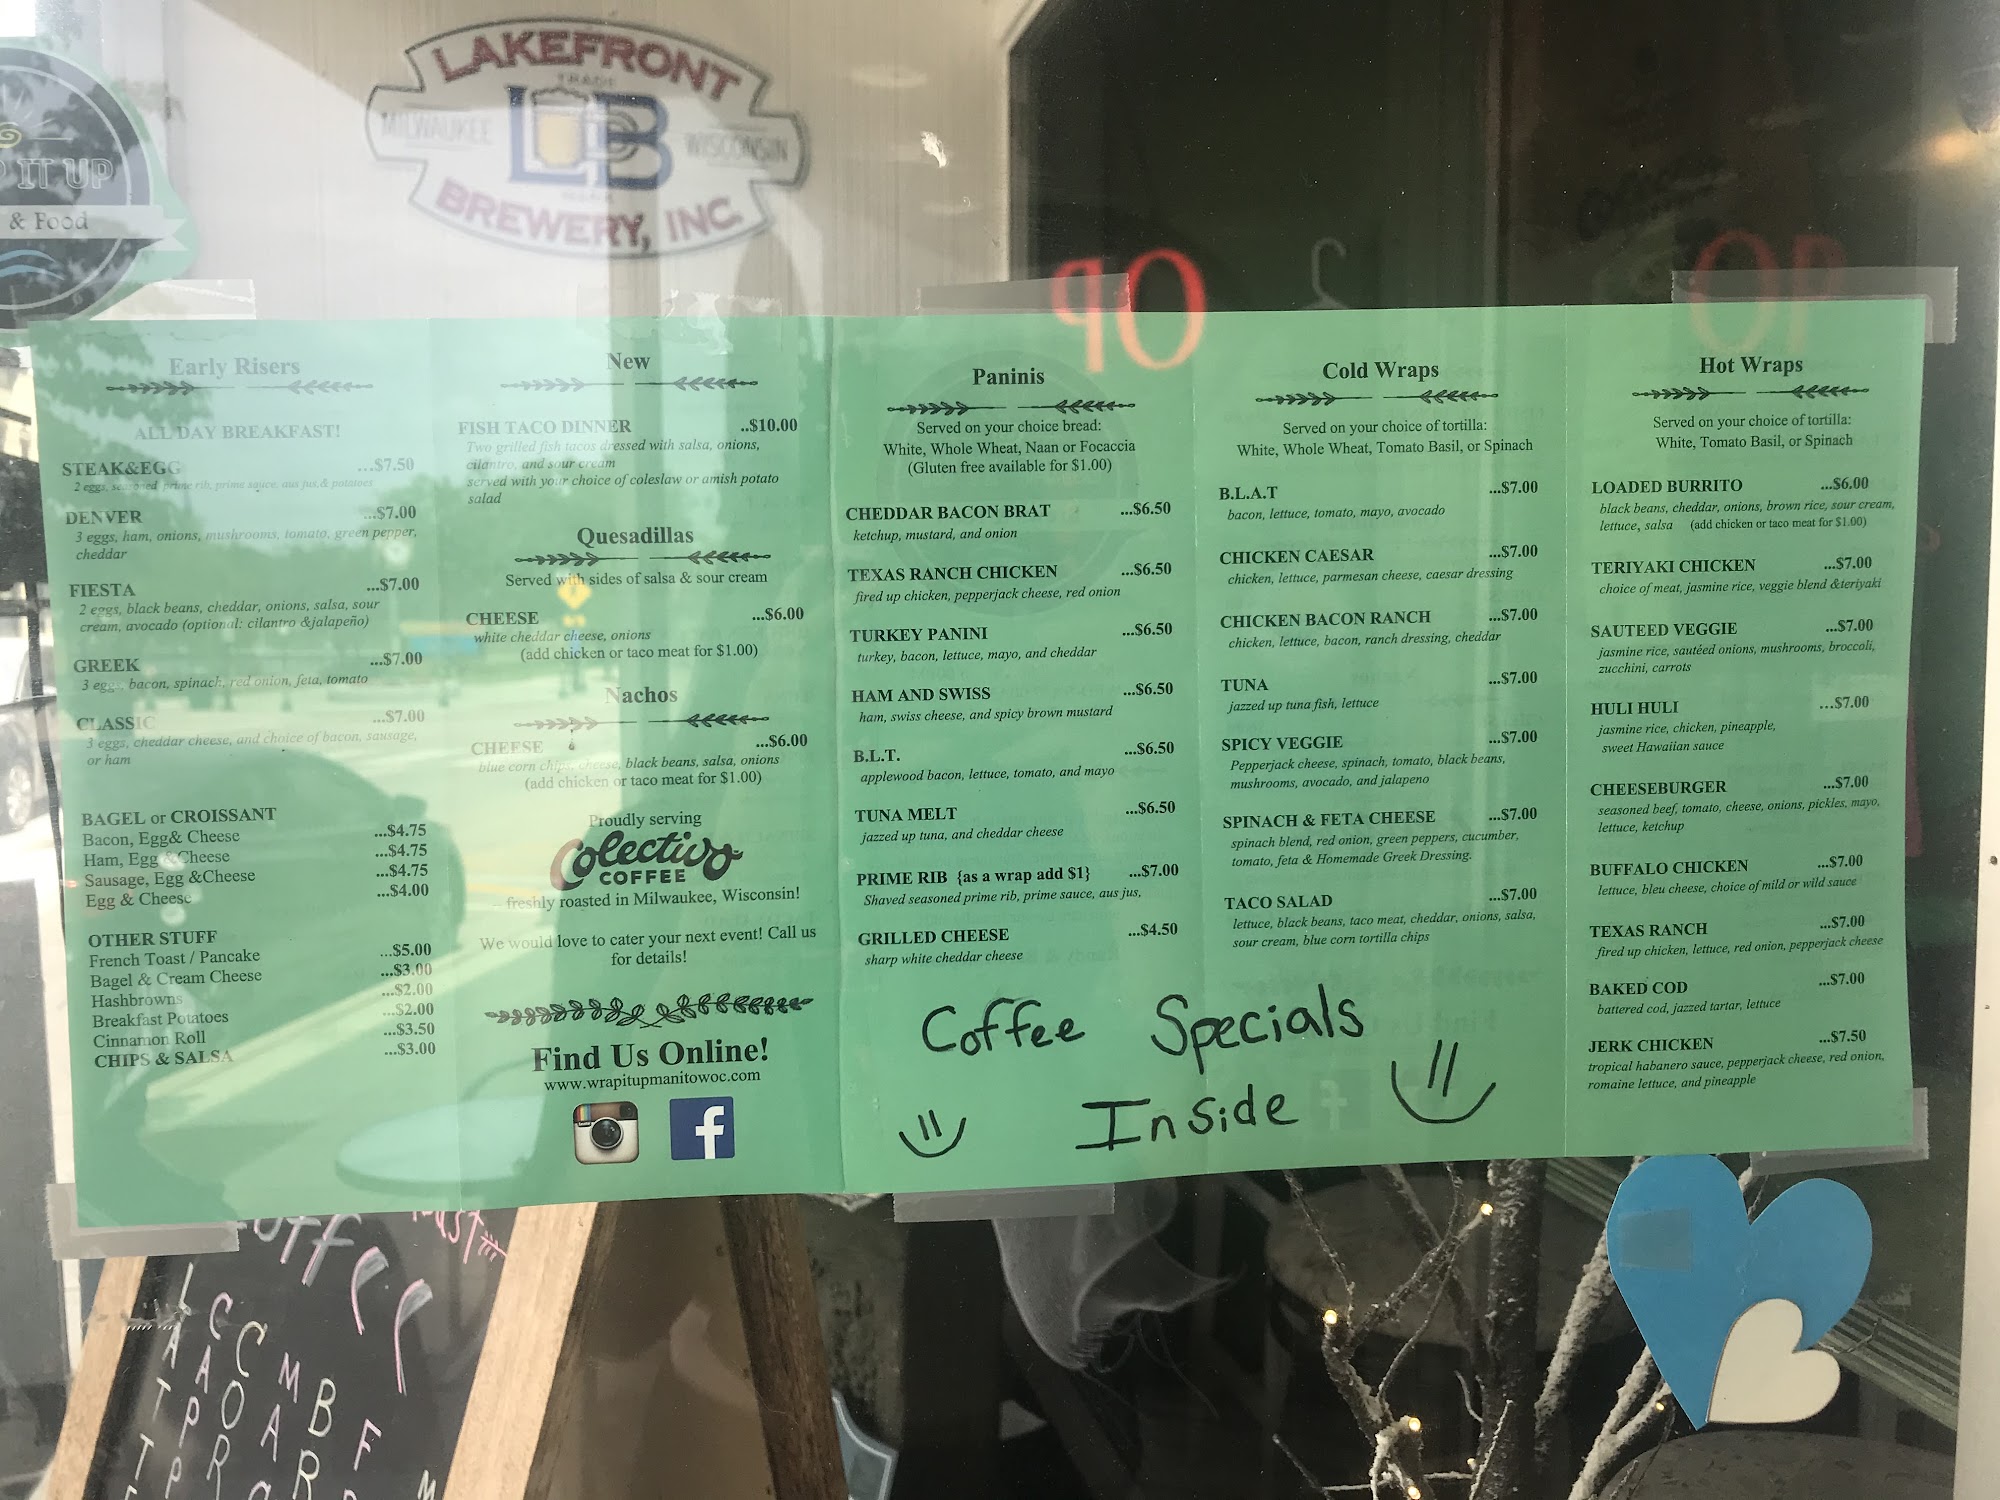 LAKEFRONT
TRADE
MILWAUKEE LB WISCONSIN
BREWERY, INC
IT UP
& Food
OP
Early Risers
ALL DAY BREAKFAST!
STEAK&EGG ...$7.50
2 eggs, seasoned prime rib, prime sauce, aus jus,& potatoes
DENVER ...$7.00
3 eggs, ham, onions, mushrooms, tomato, green pepper,
cheddar
FIESTA ...$7.00
2 eggs, black beans, cheddar, onions, salsa, sour
cream, avocado (optional: cilantro &jalapeño)
GREEK ...$7.00
3 eggs, bacon, spinach, red onion, feta, tomato
CLASSIC ...$7.00
3 eggs, cheddar cheese, and choice of bacon, sausage,
or ham
BAGEL or CROISSANT
Bacon, Egg& Cheese ...$4.75
Ham, Egg &Cheese ...$4.75
Sausage, Egg &Cheese ...$4.75
Egg & Cheese ...$4.00
OTHER STUFF
French Toast / Pancake ...$5.00
Bagel & Cream Cheese ...$3.00
Hashbrowns ...$2.00
Breakfast Potatoes ...$2.00
Cinnamon Roll ...$3.50
CHIPS & SALSA ...$3.00
New
FISH TACO DINNER ..$10.00
Two grilled fish tacos dressed with salsa, onions,
cilantro, and sour cream
served with your choice of coleslaw or amish potato
salad
Quesadillas
Served with sides of salsa & sour cream
CHEESE ...$6.00
white cheddar cheese, onions
(add chicken or taco meat for $1.00)
Nachos
CHEESE ...$6.00
blue corn chips, cheese, black beans, salsa, onions
(add chicken or taco meat for $1.00)
Proudly serving
Colectivo
COFFEE
freshly roasted in Milwaukee, Wisconsin!
We would love to cater your next event! Call us
for details!
Find Us Online!
www.wrapitupmanitowoc.com
f
Paninis
Served on your choice bread:
White, Whole Wheat, Naan or Focaccia
(Gluten free available for $1.00)
CHEDDAR BACON BRAT ...$6.50
ketchup, mustard, and onion
TEXAS RANCH CHICKEN ...$6.50
fired up chicken, pepperjack cheese, red onion
TURKEY PANINI ...$6.50
turkey, bacon, lettuce, mayo, and cheddar
HAM AND SWISS ...$6.50
ham, swiss cheese, and spicy brown mustard
B.L.T. ...$6.50
applewood bacon, lettuce, tomato, and mayo
TUNA MELT ...$6.50
jazzed up tuna, and cheddar cheese
PRIME RIB {as a wrap add $1} ...$7.00
Shaved seasoned prime rib, prime sauce, aus jus,
GRILLED CHEESE ...$4.50
sharp white cheddar cheese
Cold Wraps
Served on your choice of tortilla:
White, Whole Wheat, Tomato Basil, or Spinach
B.L.A.T ...$7.00
bacon, lettuce, tomato, mayo, avocado
CHICKEN CAESAR ...$7.00
chicken, lettuce, parmesan cheese, caesar dressing
CHICKEN BACON RANCH ...$7.00
chicken, lettuce, bacon, ranch dressing, cheddar
TUNA ...$7.00
jazzed up tuna fish, lettuce
SPICY VEGGIE ...$7.00
Pepperjack cheese, spinach, tomato, black beans,
mushrooms, avocado, and jalapeno
SPINACH & FETA CHEESE ...$7.00
spinach blend, red onion, green peppers, cucumber,
tomato, feta & Homemade Greek Dressing.
TACO SALAD ...$7.00
lettuce, black beans, taco meat, cheddar, onions, salsa,
sour cream, blue corn tortilla chips
Coffee Specials
Inside
Hot Wraps
Served on your choice of tortilla:
White, Tomato Basil, or Spinach
LOADED BURRITO ...$6.00
black beans, cheddar, onions, brown rice, sour cream,
lettuce, salsa (add chicken or taco meat for $1.00)
TERIYAKI CHICKEN ...$7.00
choice of meat, jasmine rice, veggie blend &teriyaki
SAUTEED VEGGIE ...$7.00
jasmine rice, sautéed onions, mushrooms, broccoli,
zucchini, carrots
HULI HULI ...$7.00
jasmine rice, chicken, pineapple,
sweet Hawaiian sauce
CHEESEBURGER ...$7.00
seasoned beef, tomato, cheese, onions, pickles, mayo,
lettuce, ketchup
BUFFALO CHICKEN ...$7.00
lettuce, bleu cheese, choice of mild or wild sauce
TEXAS RANCH ...$7.00
fired up chicken, lettuce, red onion, pepperjack cheese
BAKED COD ...$7.00
battered cod, jazzed tartar, lettuce
JERK CHICKEN ...$7.50
tropical habanero sauce, pepperjack cheese, red onion,
romaine lettuce, and pineapple